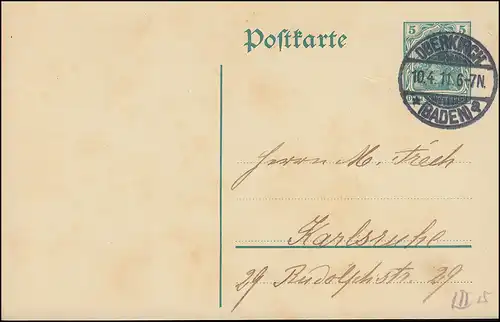 Postkarte
5 5
OBERKIRCH
10.4.11.6-7N.
* (BADEN)
Herrn M. Frech
Karlsruhe
29 Rudolphstr. 29